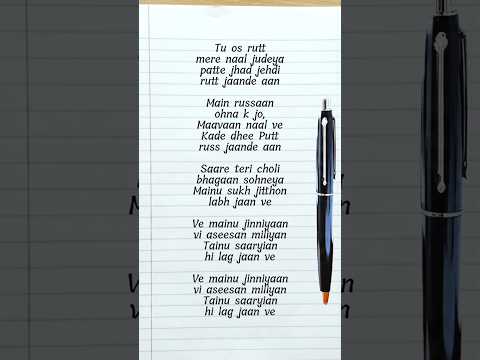 Tu os rutt
mere naal judeya
patte jhad jehdi
rutt jaande aan
Main russaan
ohna k jo,
Maavaan naal ve
Kade dhee Putt
russ jaande aan
Saare teri choli
bhagaan sohneya
Mainu sukh jitthon
labh jaan ve
Ve mainu jinniyaan
vi aseesan miliyan
Tainu saaryian
hi lag jaan ve
Ve mainu jinniyaan
vi aseesan miliyan
Tainu saaryian
hi lag jaan ve